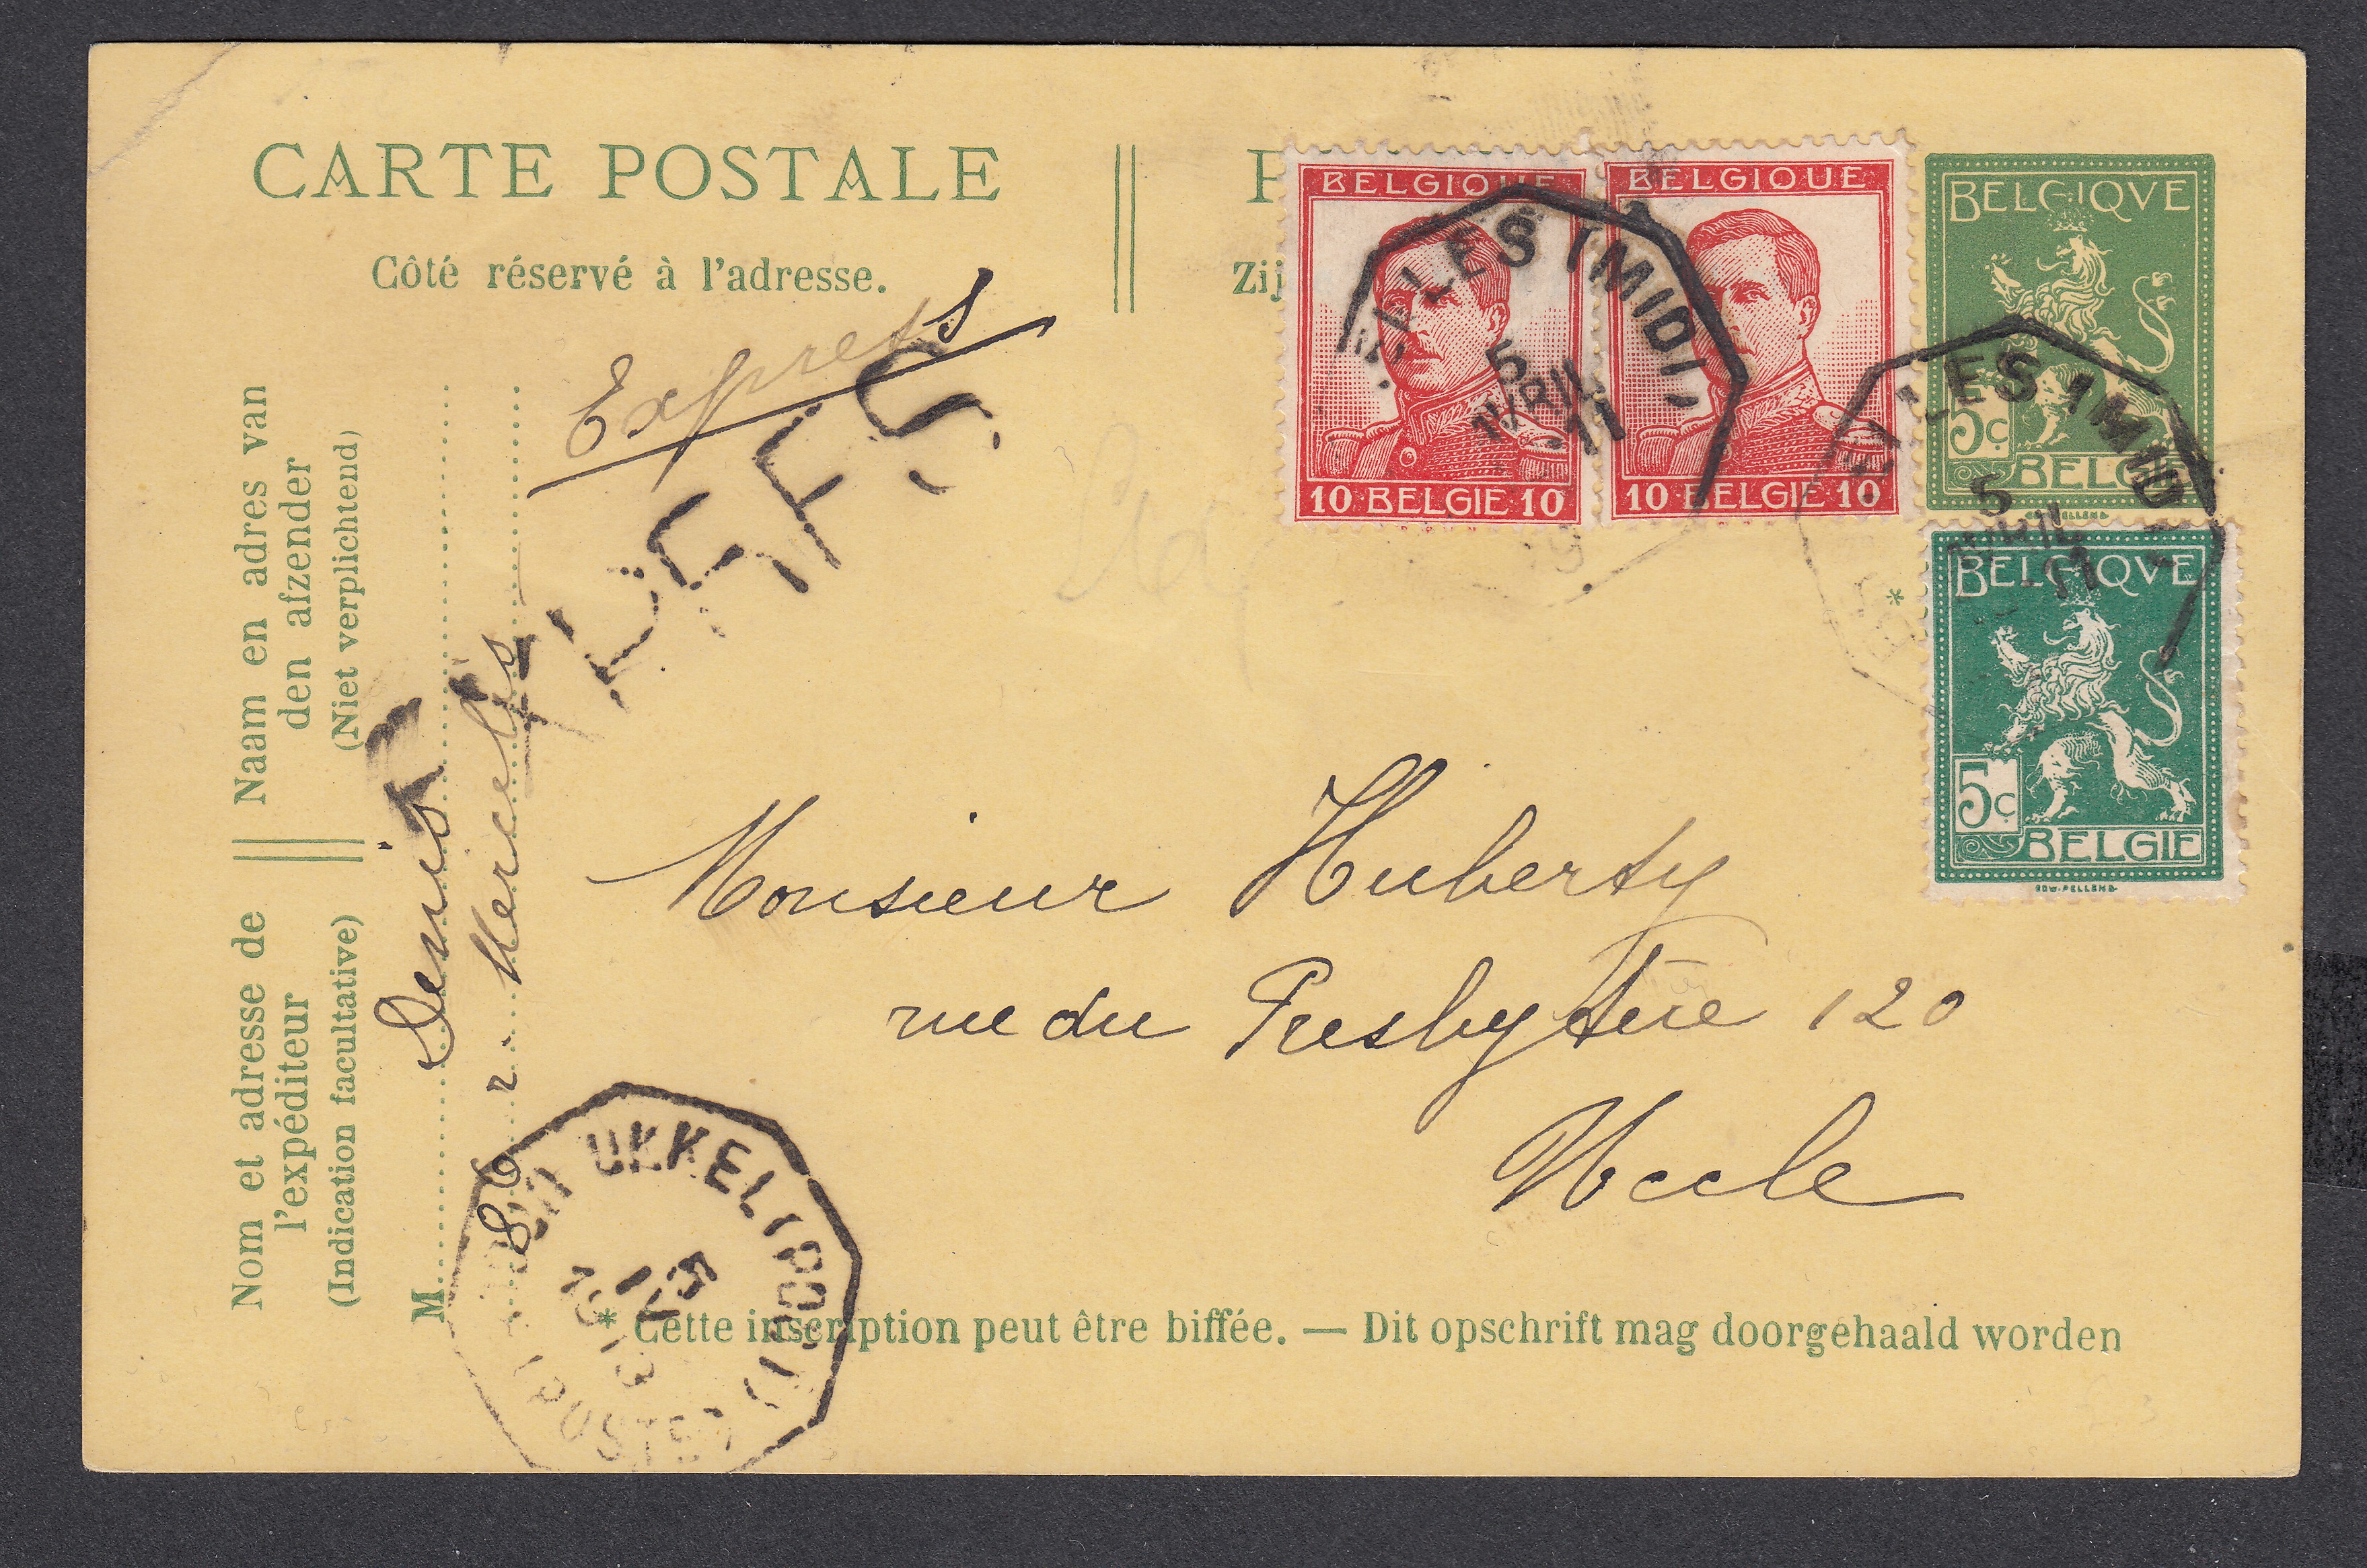 CARTE POSTALE
Côté réservé à l'adresse.
Zij
BELGIQUE
10 BELGIE 10
BELGIQUE
10 BELGIE 10
BELGIQVE
5c
BELGIE
BELGIQVE
5c
BELGIE
EDW. PELLENS
LES (MIDI)
5
AVRIL
11
LES (MIDI)
5
AVRIL
11
Express
EXPRES
Naam en adres van
den afzender
(Niet verplichtend)
Nom et adresse de
l'expéditeur
(Indication facultative)
M
Denis
86
Monsieur Huberty
rue du Presbytère 120
Uccle
UKKEL (POST)
5
IV
1913
(POSTES)
* Cette inscription peut être biffée. — Dit opschrift mag doorgehaald worden